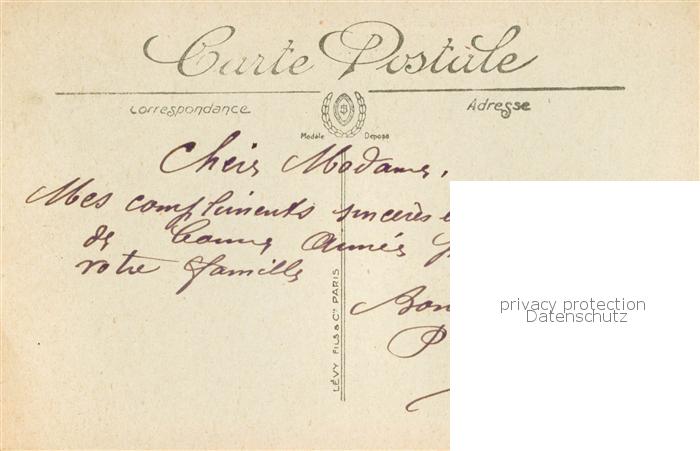 Carte Postale
Correspondance
Adresse
Modèle Déposé
Chère Madame,
Mes compliments sincères
de bonne année
votre famille
LÉVY FILS & Cie PARIS
privacy protection
Datenschutz